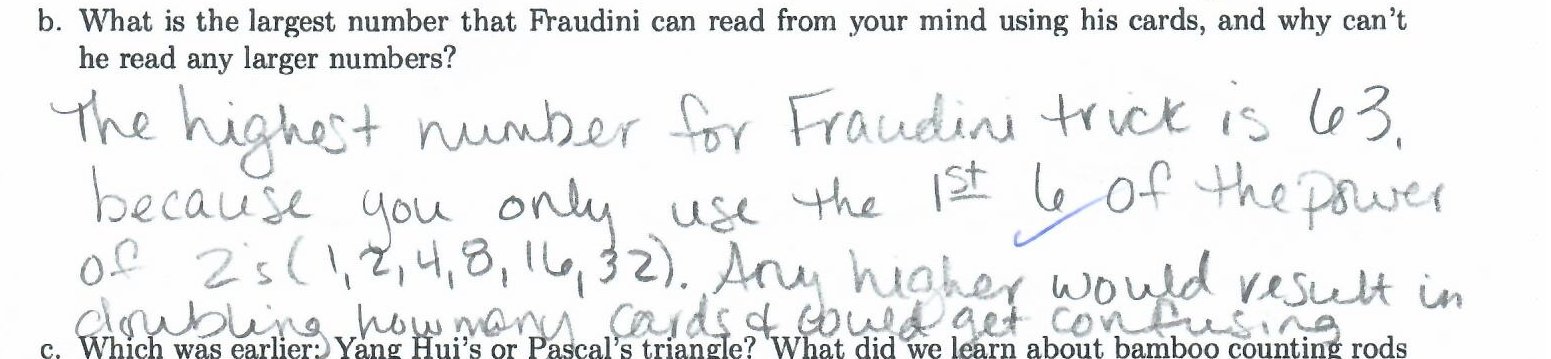 b. What is the largest number that Fraudini can read from your mind using his cards, and why can't
he read any larger numbers?
The highest number for Fraudini trick is 63,
because you only use the 1st 6 of the power
of 2's (1,2,4,8,16,32). Any higher would result in
doubling how many cards & could get confusing
c. Which was earlier: Yang Hui's or Pascal's triangle? What did we learn about bamboo counting rods